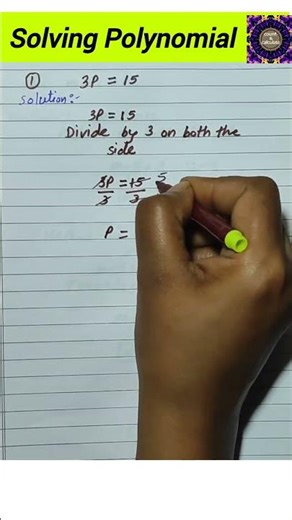 Solving Polynomial
① 3P = 15
Solution:-
3P = 15
Divide by 3 on both the
side
3P = 15 5
3 3
P =